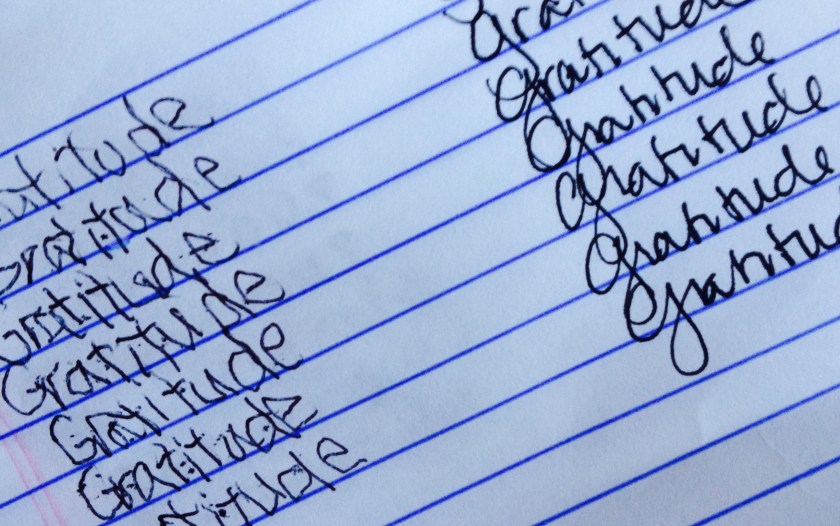 atitude
Gratitude
Gratitude
Gratitude
Gratitude
Gratitude
titude
Gra
Gratitude
Gratitude
Gratitude
Gratitude
Gratitu